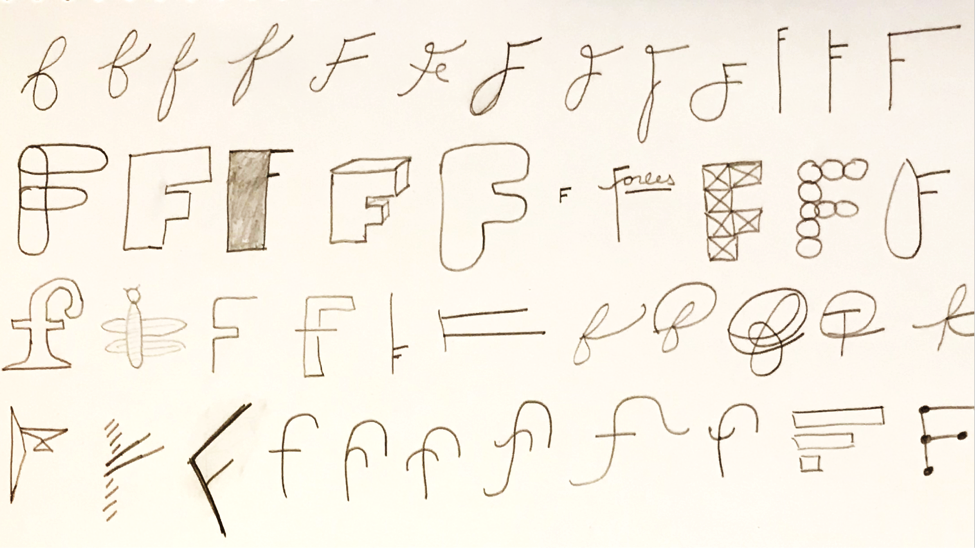 f f f f F Fe F F F F F F F
F F F F F F Forces F F F
f F F F F F f f f F f
F F F f f f f f f F F